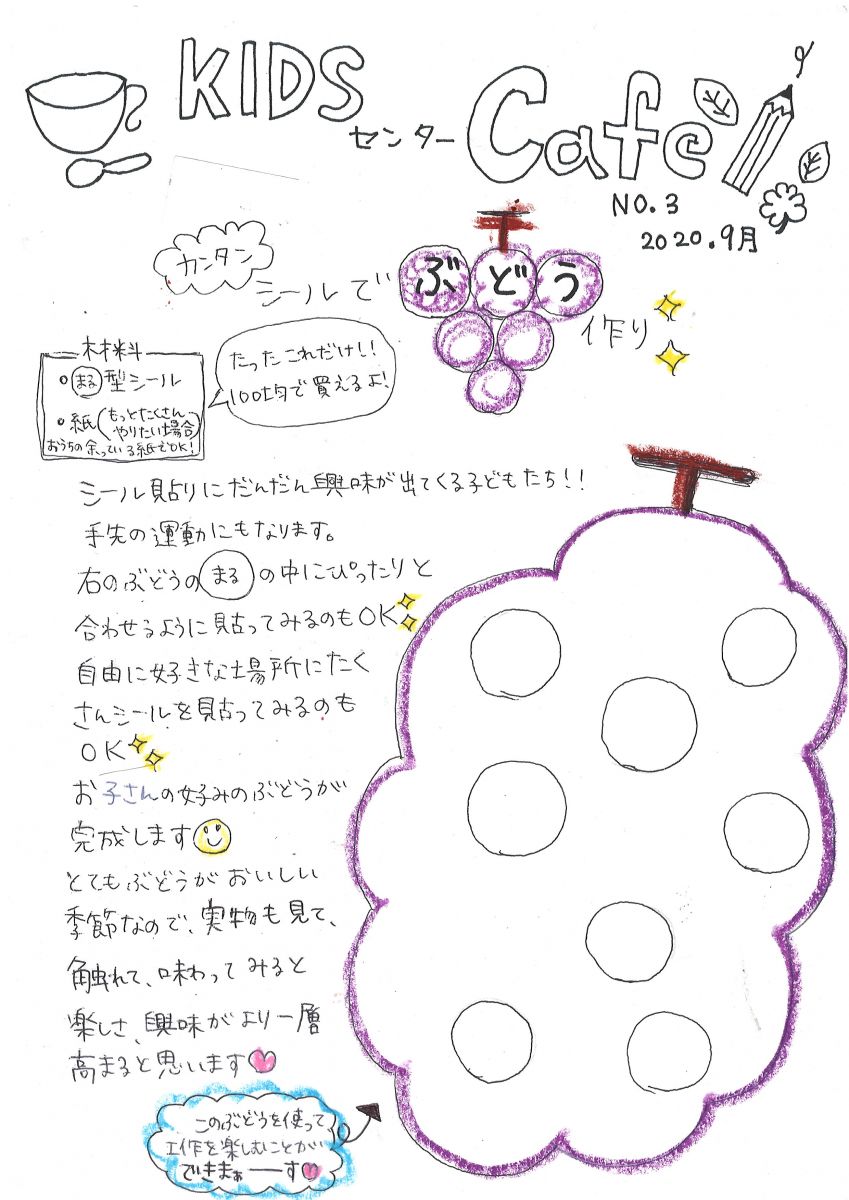 KIDS
センター Cafe
NO.3
2020.9月
カンタン
シールで ぶどう 作り
材料
・まる型シール
・紙(もっとたくさんやりたい場合)
おうちの余っている紙でOK!
たったこれだけ!!
100均で買えるよ!
シール貼りにだんだん興味が出てくる子どもたち!!
手先の運動にもなります。
右のぶどうの まる の中にぴったりと
合わせるように貼ってみるのもOK
自由に好きな場所にたく
さんシールを貼ってみるのも
OK
お子さんの好みのぶどうが
完成します
とてもぶどうがおいしい
季節なので、実物も見て、
触れて、味わってみると
楽しさ、興味がより一層
高まると思います
このぶどうを使って、
工作を楽しむことが
できまぁーーす